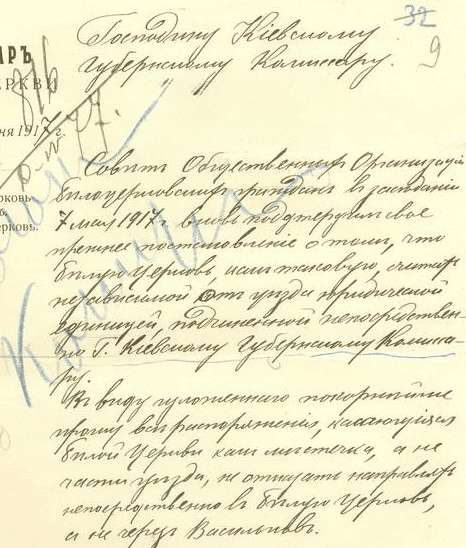 32
9
Господину Кіевскому
Губернскому Коммисару.
ИРЪ
ЕРКВИ
816
1917 г.
рковь.
б.
ерковь.
Советъ Общественныхъ Организацій
Белоцерковскихъ гражданъ в заседаніи
7 мая 1917 г. вновь подтердилъ свое
прежнее постановленіе о томъ, что
Белую Церковь, какъ таковую, считать
независимой отъ уезда юридической
единицей, подчиненной непосредствен-
но Г. Кіевскому Губернскому Коммиса-
ру.
Въ виду изложеннаго покорнейше
прошу все распоряженія, касающіяся
Белой Церкви какъ местечка, а не
части уезда, не отказать направлять
непосредственно въ Белую Церковь,
а не черезъ Васильковъ.